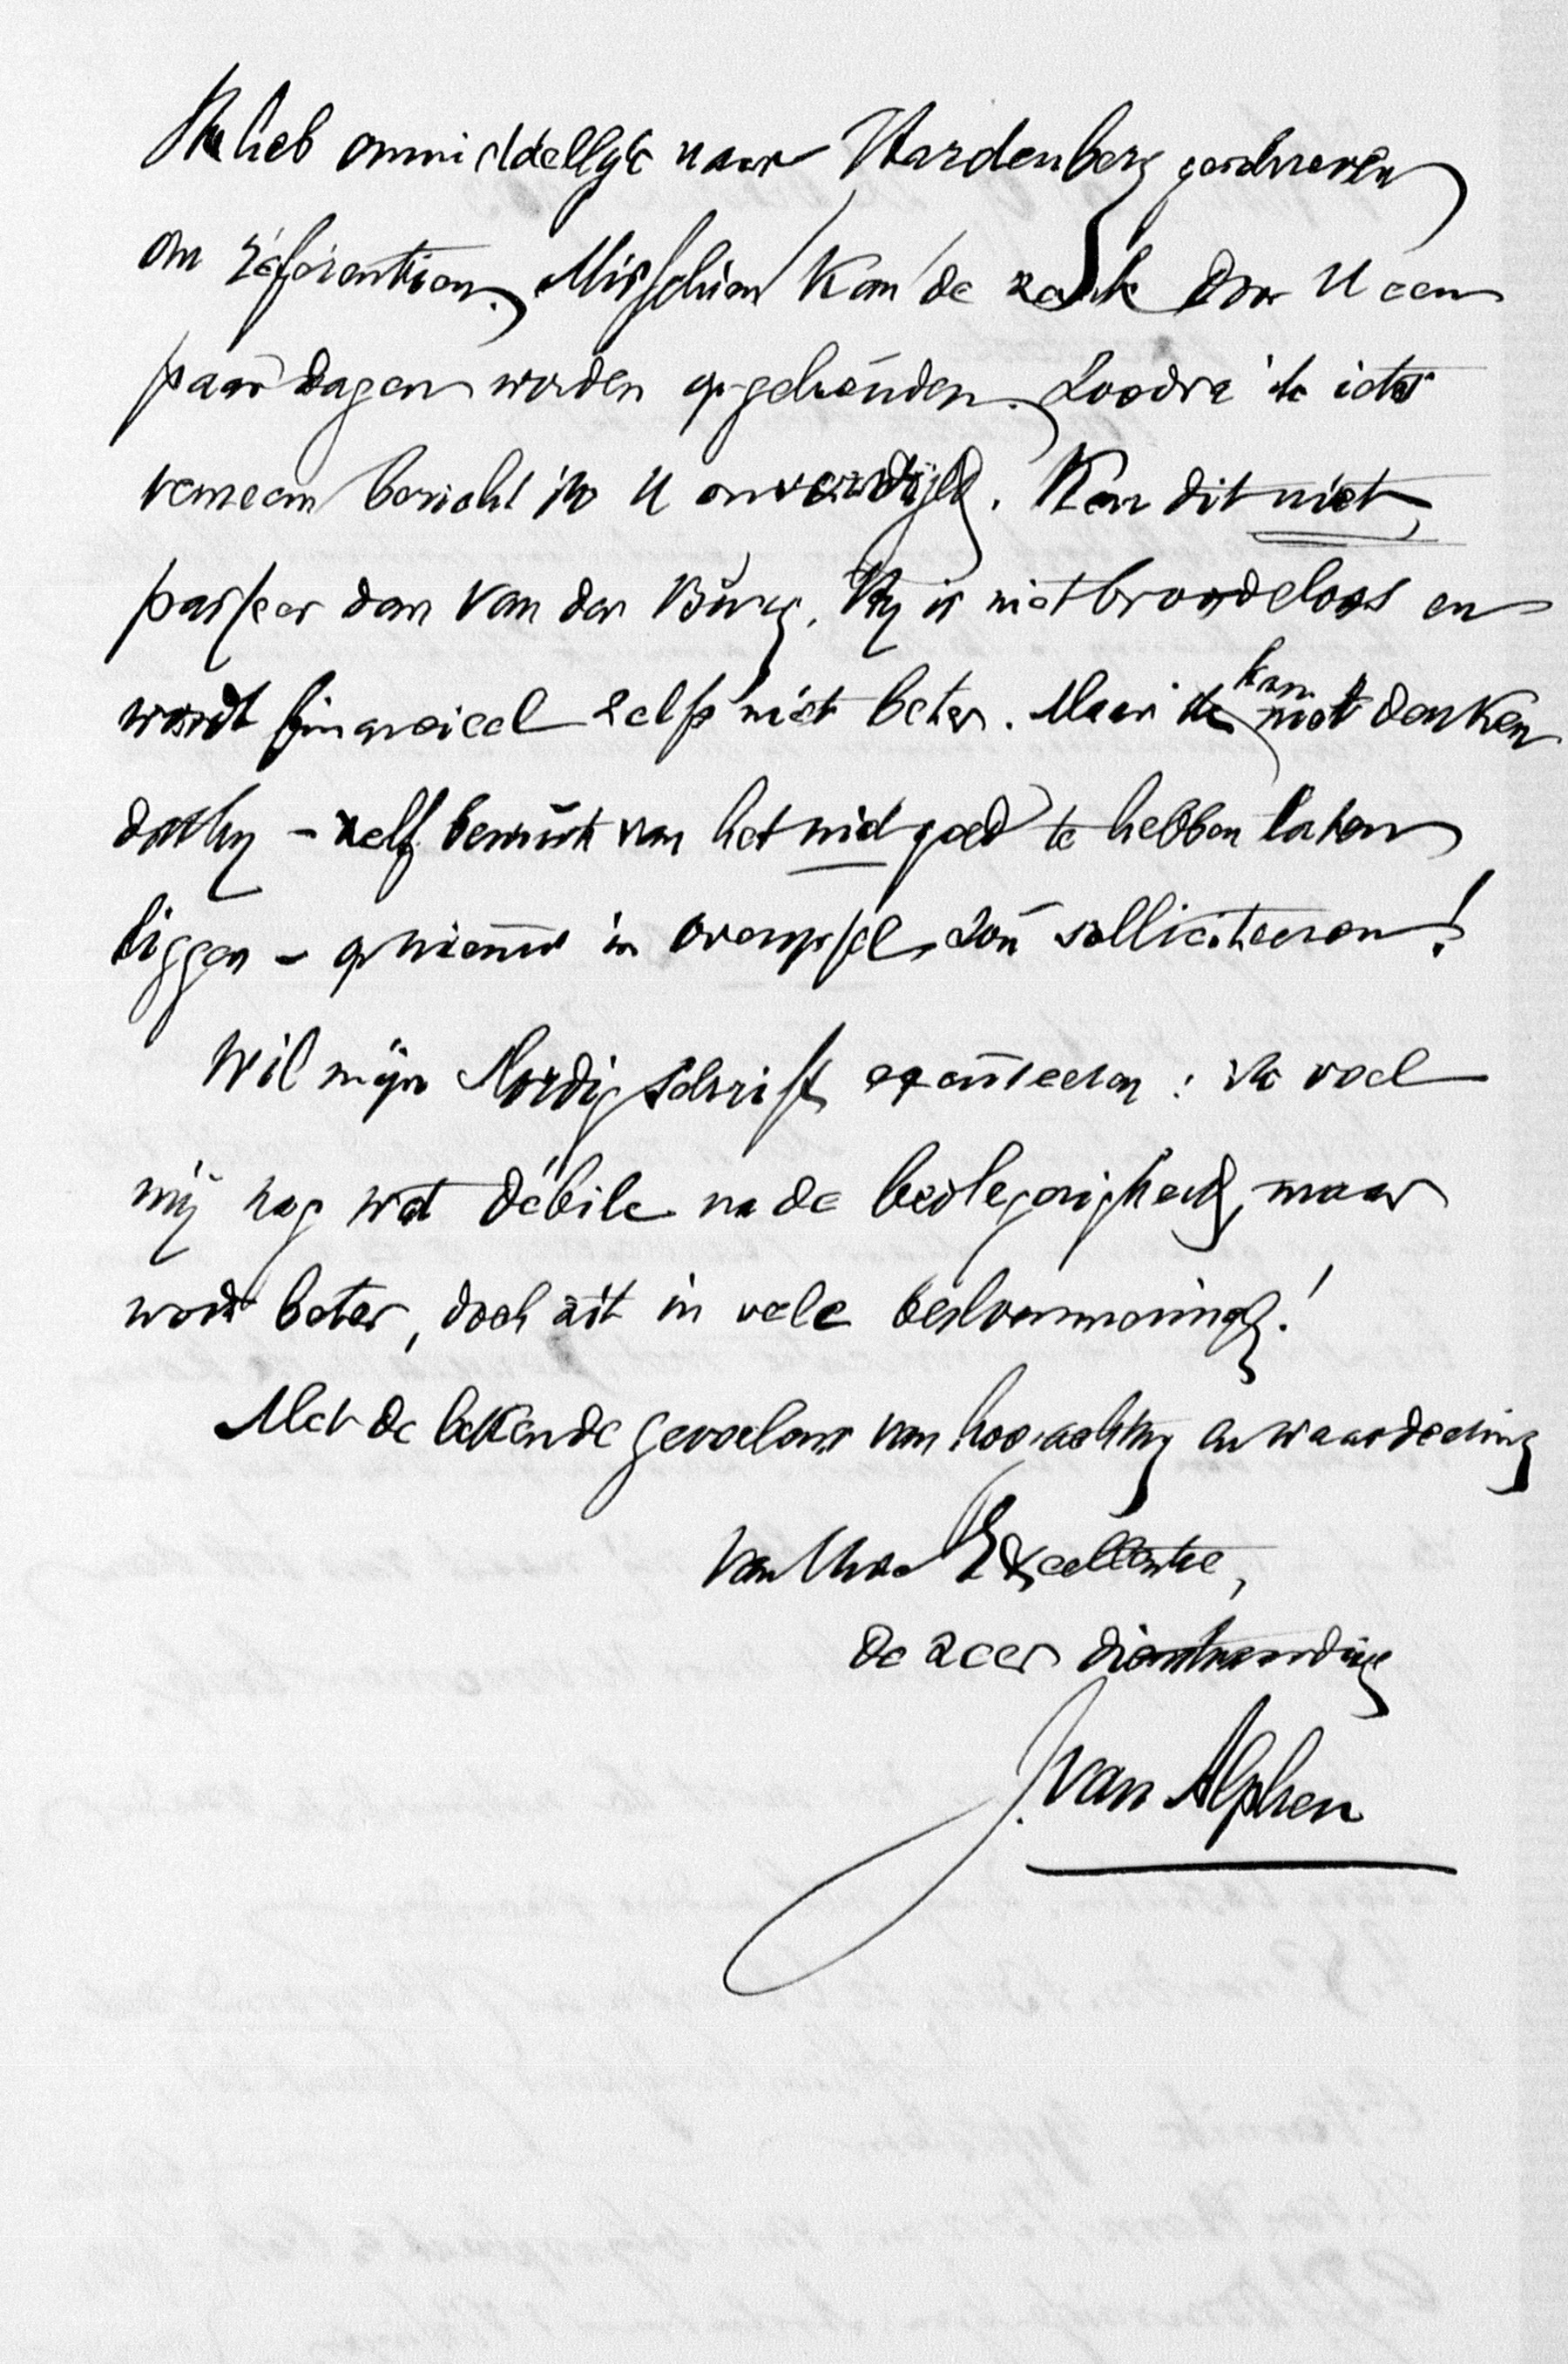 Ik heb onmiddellijk naar Hardenberg geschreven
om referentien. Misschien kan de zaak door U een
paar dagen worden opgehouden. Zoodra ik iets
verneem bericht ik U onverwijld. Kan dit niet,
passeer dan Van der Burg. Hij is niet broodeloos en
wordt financieel zelfs niet beter. Maar ik kan niet denken
dat hij – zelf bewust van het niet goed te hebben laten
liggen – opnieuw in Overijssel zou solliciteeren!
Wil mijn slordig schrift excuseeren: ik voel
mij nog wat débile na de bedlegerigheid, maar
word beter, doch zit in vele beslommeringen!
Met de bekende gevoelens van hoogachting en waardeering
van Uwe Excellentie,
de zeer dienstvaardige
J. van Alphen